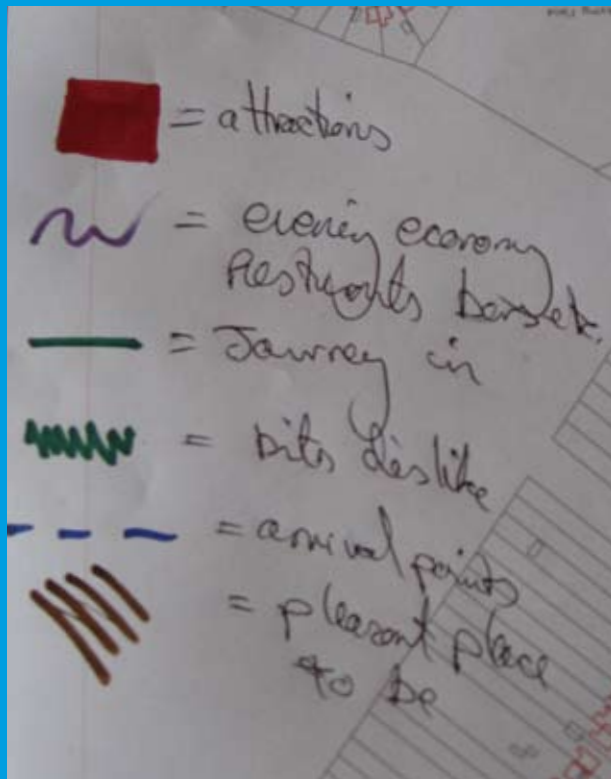 = attractions
= evening economy
Restraunts bars etc.
= Journey in
= bits dislike
= arrival points
= pleasant place
to be